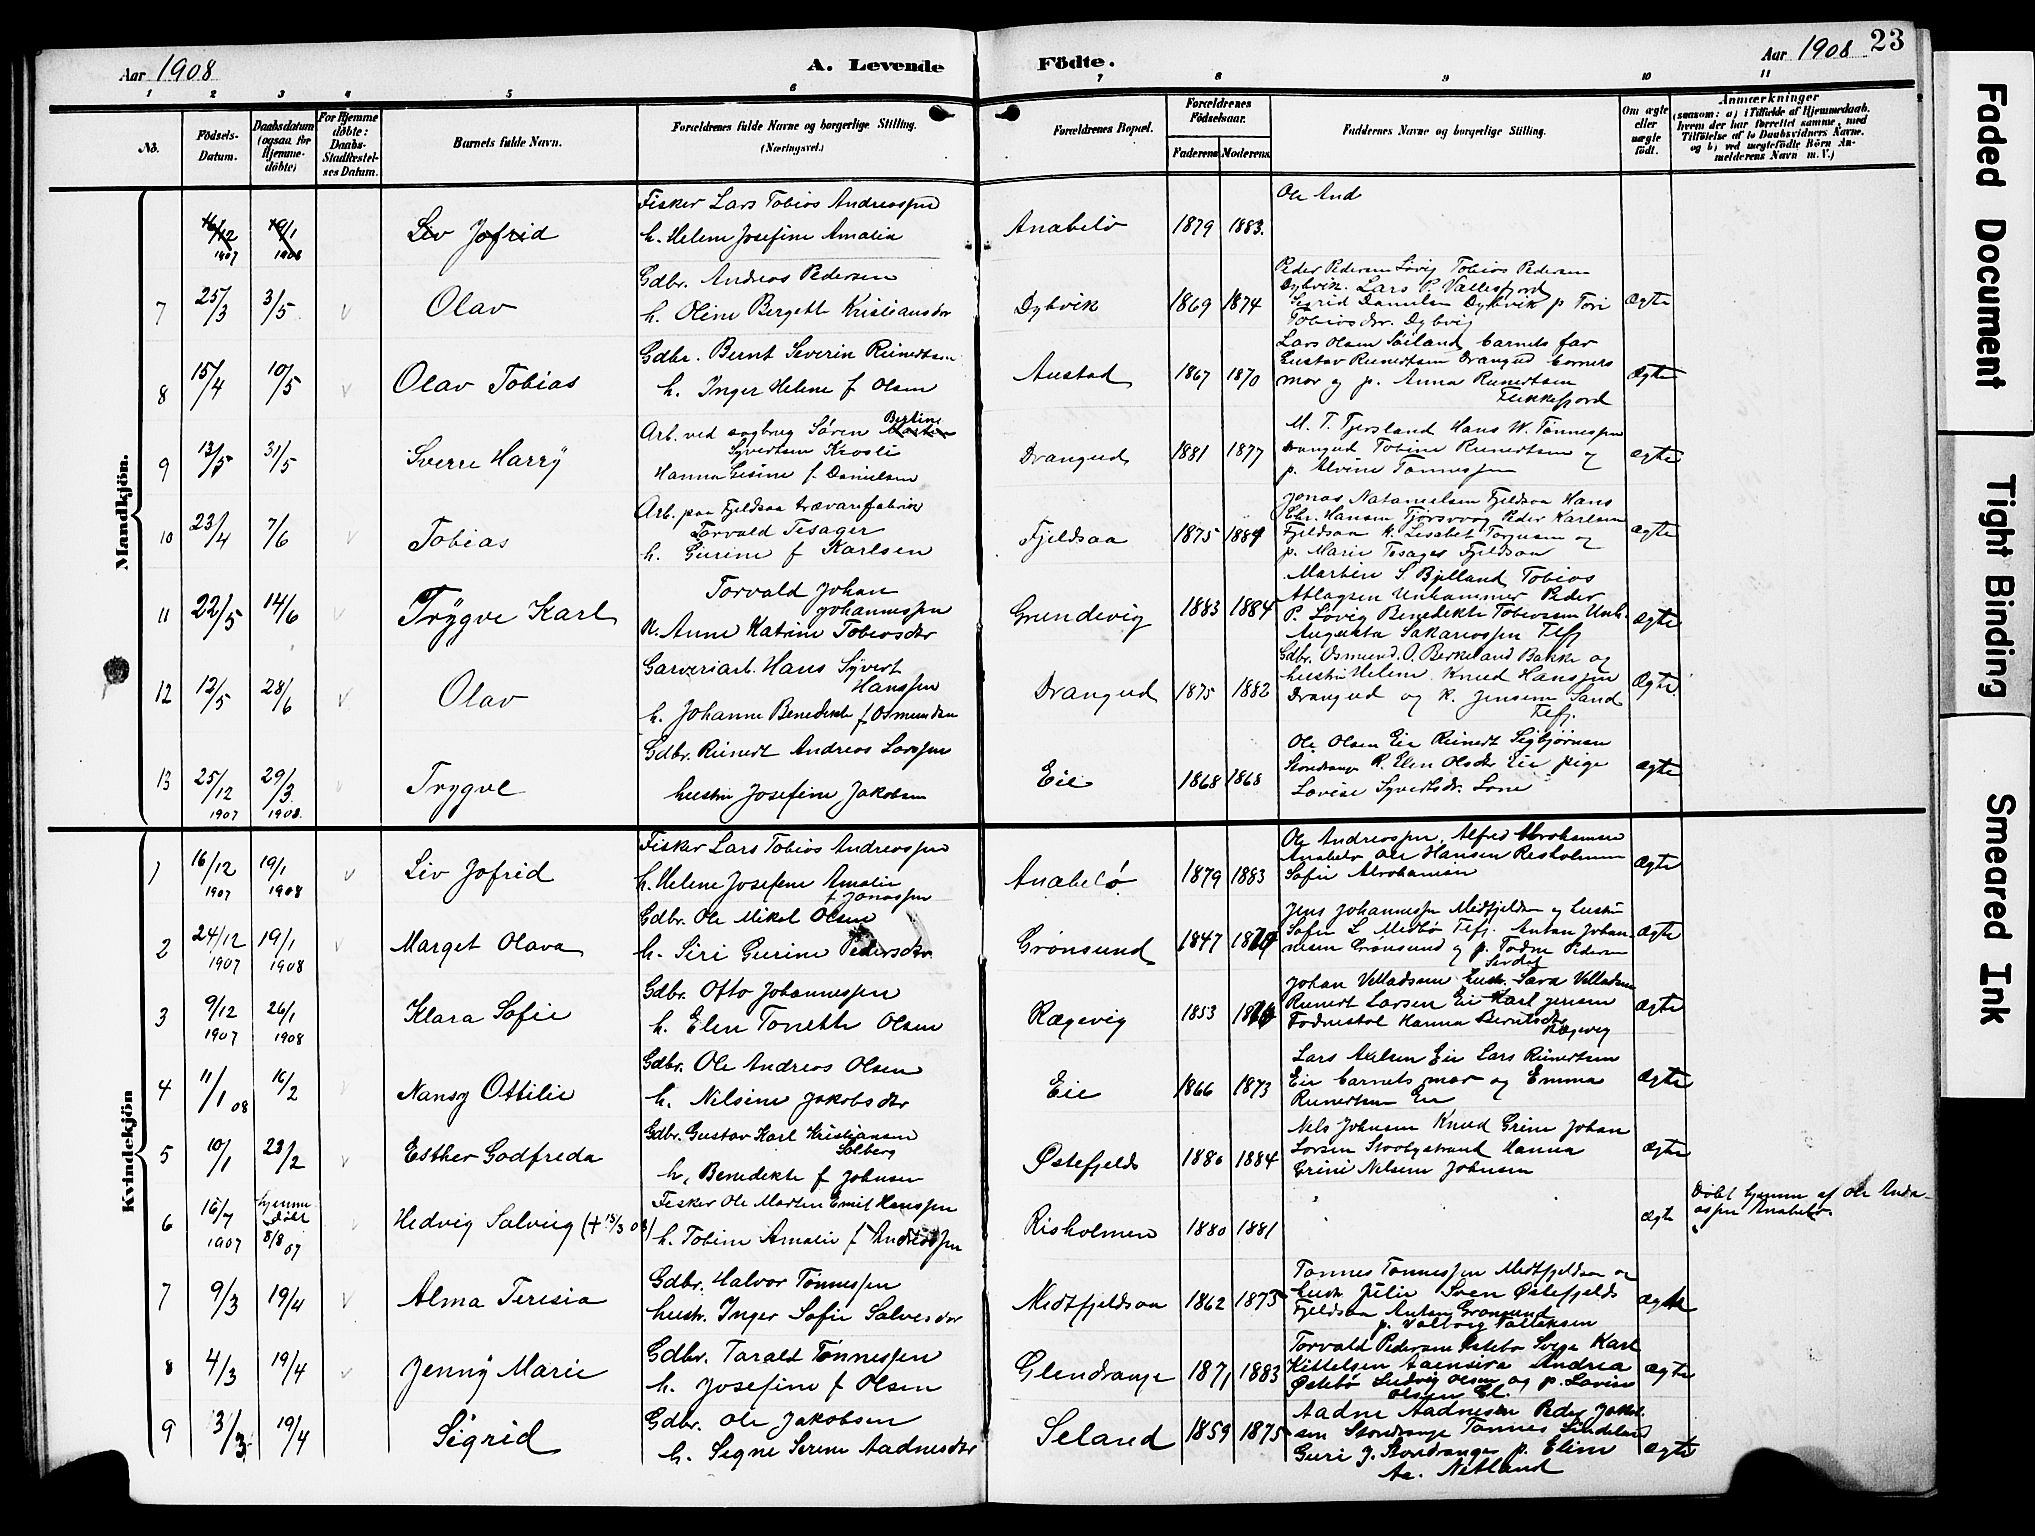 Aar 1908
A. Levende
Födte.
Aar 1908
23
1 2 3 4 5 6 7 8 9 10 11
No.
Födsels-Datum.
Daabsdatum (ogsaa for Hjemmedöbte)
For Hjemmedöbte: Daabs-Stadfæstelses Datum.
Barnets fulde Navn.
Forældrenes fulde Navne og borgerlige Stilling. (Næringsvei.)
Forældrenes Bopæl.
Forældrenes Födselsaar.
Faderens Moderens
Faddernes Navne og borgerlige Stilling.
Om ægte eller uægte födt.
Anmærkninger
(saasom: a) i Tilfælde af Hjemmedaab, hvem der har forrettet samme, med Tilföielse af to Daabsvidners Navne. og b) ved uægtefödte Börn Anmelderens Navn m. V.)
Mandkjön.
16/12 1907 19/1 1908 Liv Jofrid
Fisker Lars Tobias Andreassen
h. Helene Josefine Amalia
Anabelö 1879 1883.
Ole And
7 25/3 3/5 v Olav
Gdbr. Andreas Pedersen
h. Oline Bergette Kristiansdtr
Dybvik 1869 1874
Peder Pedersen Lövig Tobias Pedersen
Dybvik. Lars P. Vallesfjord
Sigrid Danielsen Dybvik p. Tori
Tobiasdtr. Dybvig
Ægte
8 15/4 10/5 v Olav Tobias
Gdbr. Bernt Severin Reinertsen
h. Inger Helene f Olsen
Austad 1867 1870
Lars Olsen Söiland barnets far
Gustav Reinertsen Drangeid barnets
mor og p. Anna Reinertsen
Flekkefjord
Ægte
9 13/5 31/5 Sverre Harry
Arb. ved sagbrug Sören Bertine
Syvertsen Krosli
Hanna Gesine f. Danielsen
Drangeid 1881 1877
M. T. Tjersland Hans W. Tönnessen
Drangeid Tobine Reinertsen og
p. Alvine Tönnessen
ægte
10 23/4 7/6 v Tobias
Arb. paa Fjeldsaa trævarefabrik
Torvald Tesager
h. Gurine f Karlsen
Fjeldsaa 1875 1884
Jonas Natanielsen Fjeldsaa Hans
Chr. Hansen Tjörsvog Peder Karlsen
Fjeldsaa k. Lisabet Torgersen og
p. Marie Tesager Fjeldsaa
ægte
11 22/5 14/6 v Trygve Karl
Torvald Johan
Johannessen
k. Anne Katrine Tobiasdtr
Grundevig 1883 1884
Martin S. Bjelland Tobias
Atlagsen Unhammer Peder
P. Lövig Benedikte Tobiassen Unh.
Augusta Sakariassen Flfj
ægte
12 12/5 28/6 v Olav
Garveriarb. Hans Syvert
Hanssen
h. Johanne Benedikte f Osmundsen
Drangeid 1875 1882
Gdbr. Osmund. O. Berkeland Bakke og
hustru Helene. Knud Hanssen
Drangeid og k. Jensine Sand
Flfj.
Ægte
13 25/12 1907 29/3 1908. Trygve
Gdbr. Reinert Andreas Larssen
hustru Josefine Jakobsen
Eie 1868 1868
Ole Olsen Eie Reinert Sigbjörnsen
Stordrange K. Elen Olsdtr Eie pige
Lovise Syvertsdr. Lone
ægte
Kvindekjön
1 16/12 1907 19/1 1908 v Liv Jofrid
Fisker Lars Tobias Andreassen
h. Helene Josefine Amalie
f Jonassen
Anabelö 1879 1883
Ole Andreassen, Alfred Abrahamsen
Anabelö Ole Hansen Resholmen
Sofie Abrahamsen
ægte
2 24/12 1907 19/1 1908 v Marget Olava
Gdbr. Ole Mikal Olsen
h. Siri Gurine Pedersdtr
Grönsund 1847
Jens Johannessen Medfjeldsaa og hustru
Sofie L. Medbö Flfj. Anton Johannesen Grönsund og p. Todne Pedersen
Serdal
ægte
3 9/12 1907 26/1 1908 Klara Sofie
Gdbr. Otto Johannessen
h. Elen Tonette Olsen
Rægevig 1853
Johan Velladsen hustr. Sara Velladsen
Reinert Larsen Eie Karl Jensen
Fodnestöl Hanna Berntsdtr
Rægevig
ægte
4 11/1 08 16/2 Nansy Ottilie
Gdbr. Ole Andreas Olsen
h. Nilsine Jakobsdtr
Eie 1866 1873
Lars Axelsen Eie Lars Reinertsen
Eie barnets mor og Emma
Reinertsen Eie
ægte
5 10/1 23/2 v Esther Godfreda
Gdbr. Gustav Karl Kristiansen
Solberg
h. Benedikte f Johnsen
Östefjelds 1880 1884
Nels Johnsen Knud Grine Johan
Larsen Stoobystrand Hanna
Grini Nilsine Johnsen
ægte
6 15/7 1907 hjemmedöbt 8/8 07 v Hedvig Salvine (+ 15/3 08)
Fisker Ole Marten Emil Hanssen
h. Tobine Amalie f Andreassen
Risholmen 1880 1881
ægte
Döbt hjemme af Ole Andreassen Anabelö.
7 9/3 19/4 v Alma Teresia
Gdbr. Halvor Tönnessen
hustr. Inger Sofie Salvesdtr
Medfjeldsaa 1862 1873
Tönnes Tönnessen Medfjeldsaa og
hustr. Julie Sven Östefjelds
Fjeldsaa Anton Grönsund
p. Valborg Tallaksen
ægte
8 4/3 19/4 v Jenny Marie
Gdbr. Tarald Tönnessen
h. Josefine f Olsen
Glendrange 1871 1883
Torvald Pedersen Östebö Svege Karl
Kittelsen Aaensira Andrea
Östebö Ludvig Olsen og p. Lovise
Olsen Gl.
ægte
9 3/3 19/4 Sigrid
Gdbr. Ole Jakobsen
h. Signe Serene Aadnesdtr
Seland 1859 1875
Aadne Aadnesen Peder Jakobsen Stordrange Tönnes Lindeland
Guri J. Stordrange p. Eline
Aa. Netland
ægte
Faded Document
Tight Binding
Smeared Ink